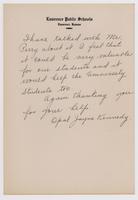 Lawrence Public Schools
Lawrence, Kansas
I have talked with Mr.
Perry about it & feel that
it could be very valuable
for our students and it
would help the University
students too.
Again thanking you
for your help.
Opal Jayne Kennedy